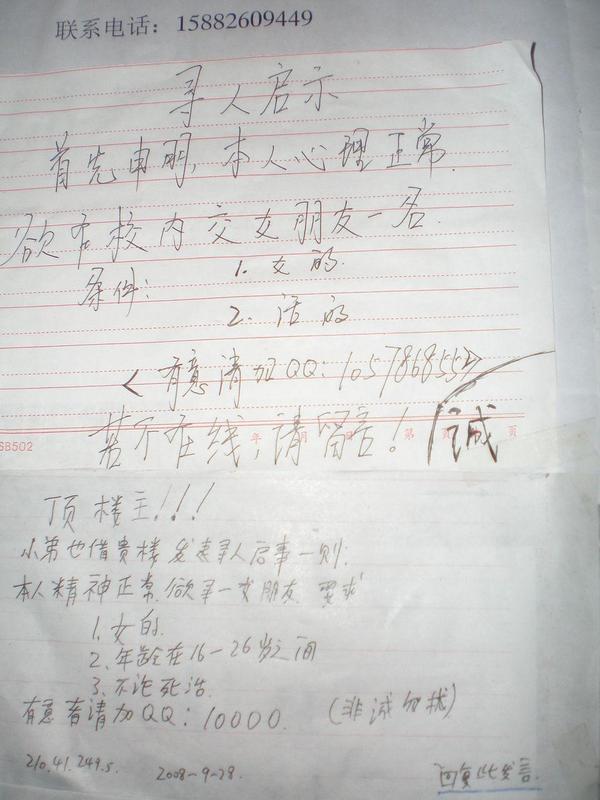 联系电话：15882609449
寻人启示
首先申明,本人心理正常.
欲在校内交女朋友一名.
条件: 1. 女的.
2. 活的
<有意请加QQ: 105786855>
若不在线,请留言! 诚
年 月 日 第 页 页
68502
顶楼主!!!
小弟也借贵楼发表寻人启事一则:
本人精神正常.欲寻一女朋友.要求
1. 女的.
2. 年龄在16-26岁之间
3. 不论死活.
有意者请加QQ: 10000. (非诚勿扰)
210.41.249.5. 2008-9-28.
回复此发言.